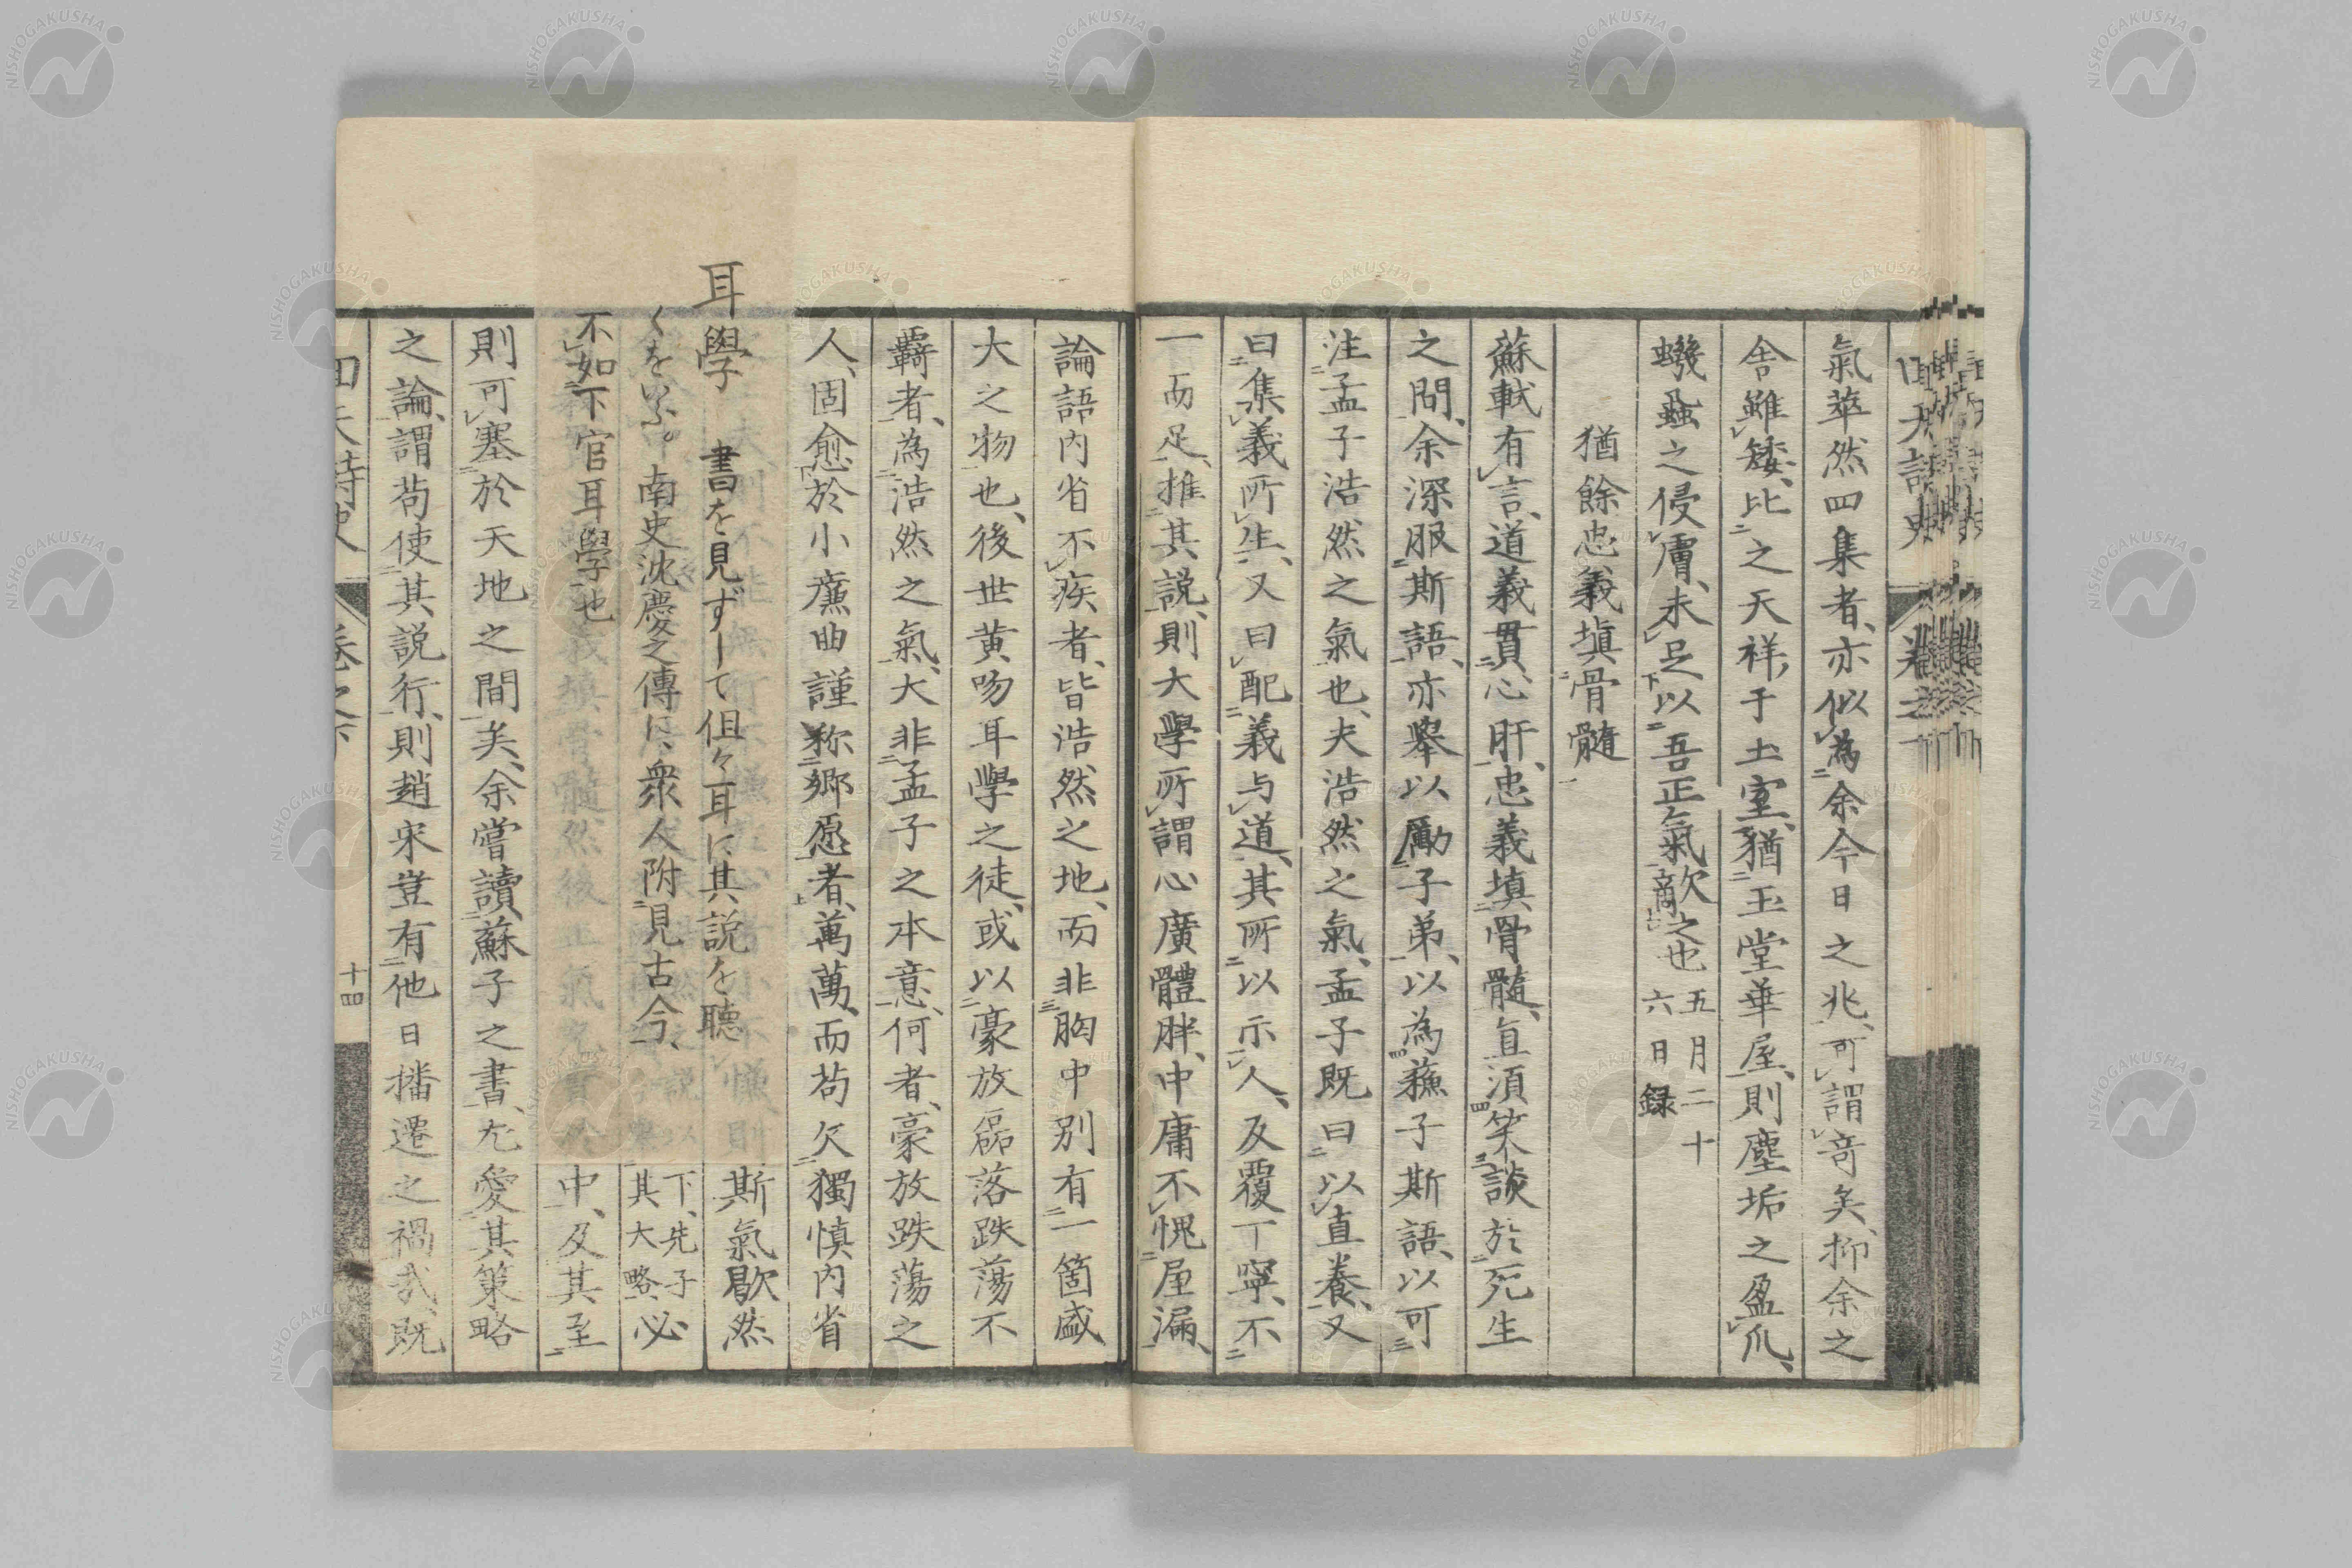 氣萃然四集者、亦似為余今日之兆、可謂奇矣、抑余之
舎雖矮、比之天祥、于土室、猶玉堂華屋、則塵垢之盈爪、
蟣蝨之侵膚、未足以吾正氣敵之也 五月二十六日録
猶餘忠義塡骨髓
蘇軾有言、道義貫心肝、忠義塡骨髓、直須笑談於死生
之間、余深服斯語、亦擧以勵子弟、以為蘓子斯語、以可
注孟子浩然之氣也、夫浩然之氣、孟子既曰、以直養、又
曰集義所生、又曰配義与道、其所以示人、反覆丁寧、不
一而足、推其説、則大學所謂心廣體胖、中庸不愧屋漏、
論語内省不疾者、皆浩然之地、而非胸中別有一箇盛
大之物也、後世黄吻耳學之徒、或以豪放磊落跌蕩不
覊者、為浩然之氣、大非孟子之本意、何者、豪放跌蕩之
人、固愈於小廉曲謹称郷愿者、萬萬、而苟欠獨慎内省
耳學 書を見ずして但々耳に其説を聴
くをいふ。南史沈慶之傳に、衆人附見古今、
不如下官耳學也
斯氣歇然
下、先子必
其大略
中、及其至
則可塞於天地之間矣、余嘗讀蘇子之書、尤愛其策略
之論、謂苟使其説行、則趙宋豈有他日播遷之禍哉、既
回天詩史 巻之下 十四